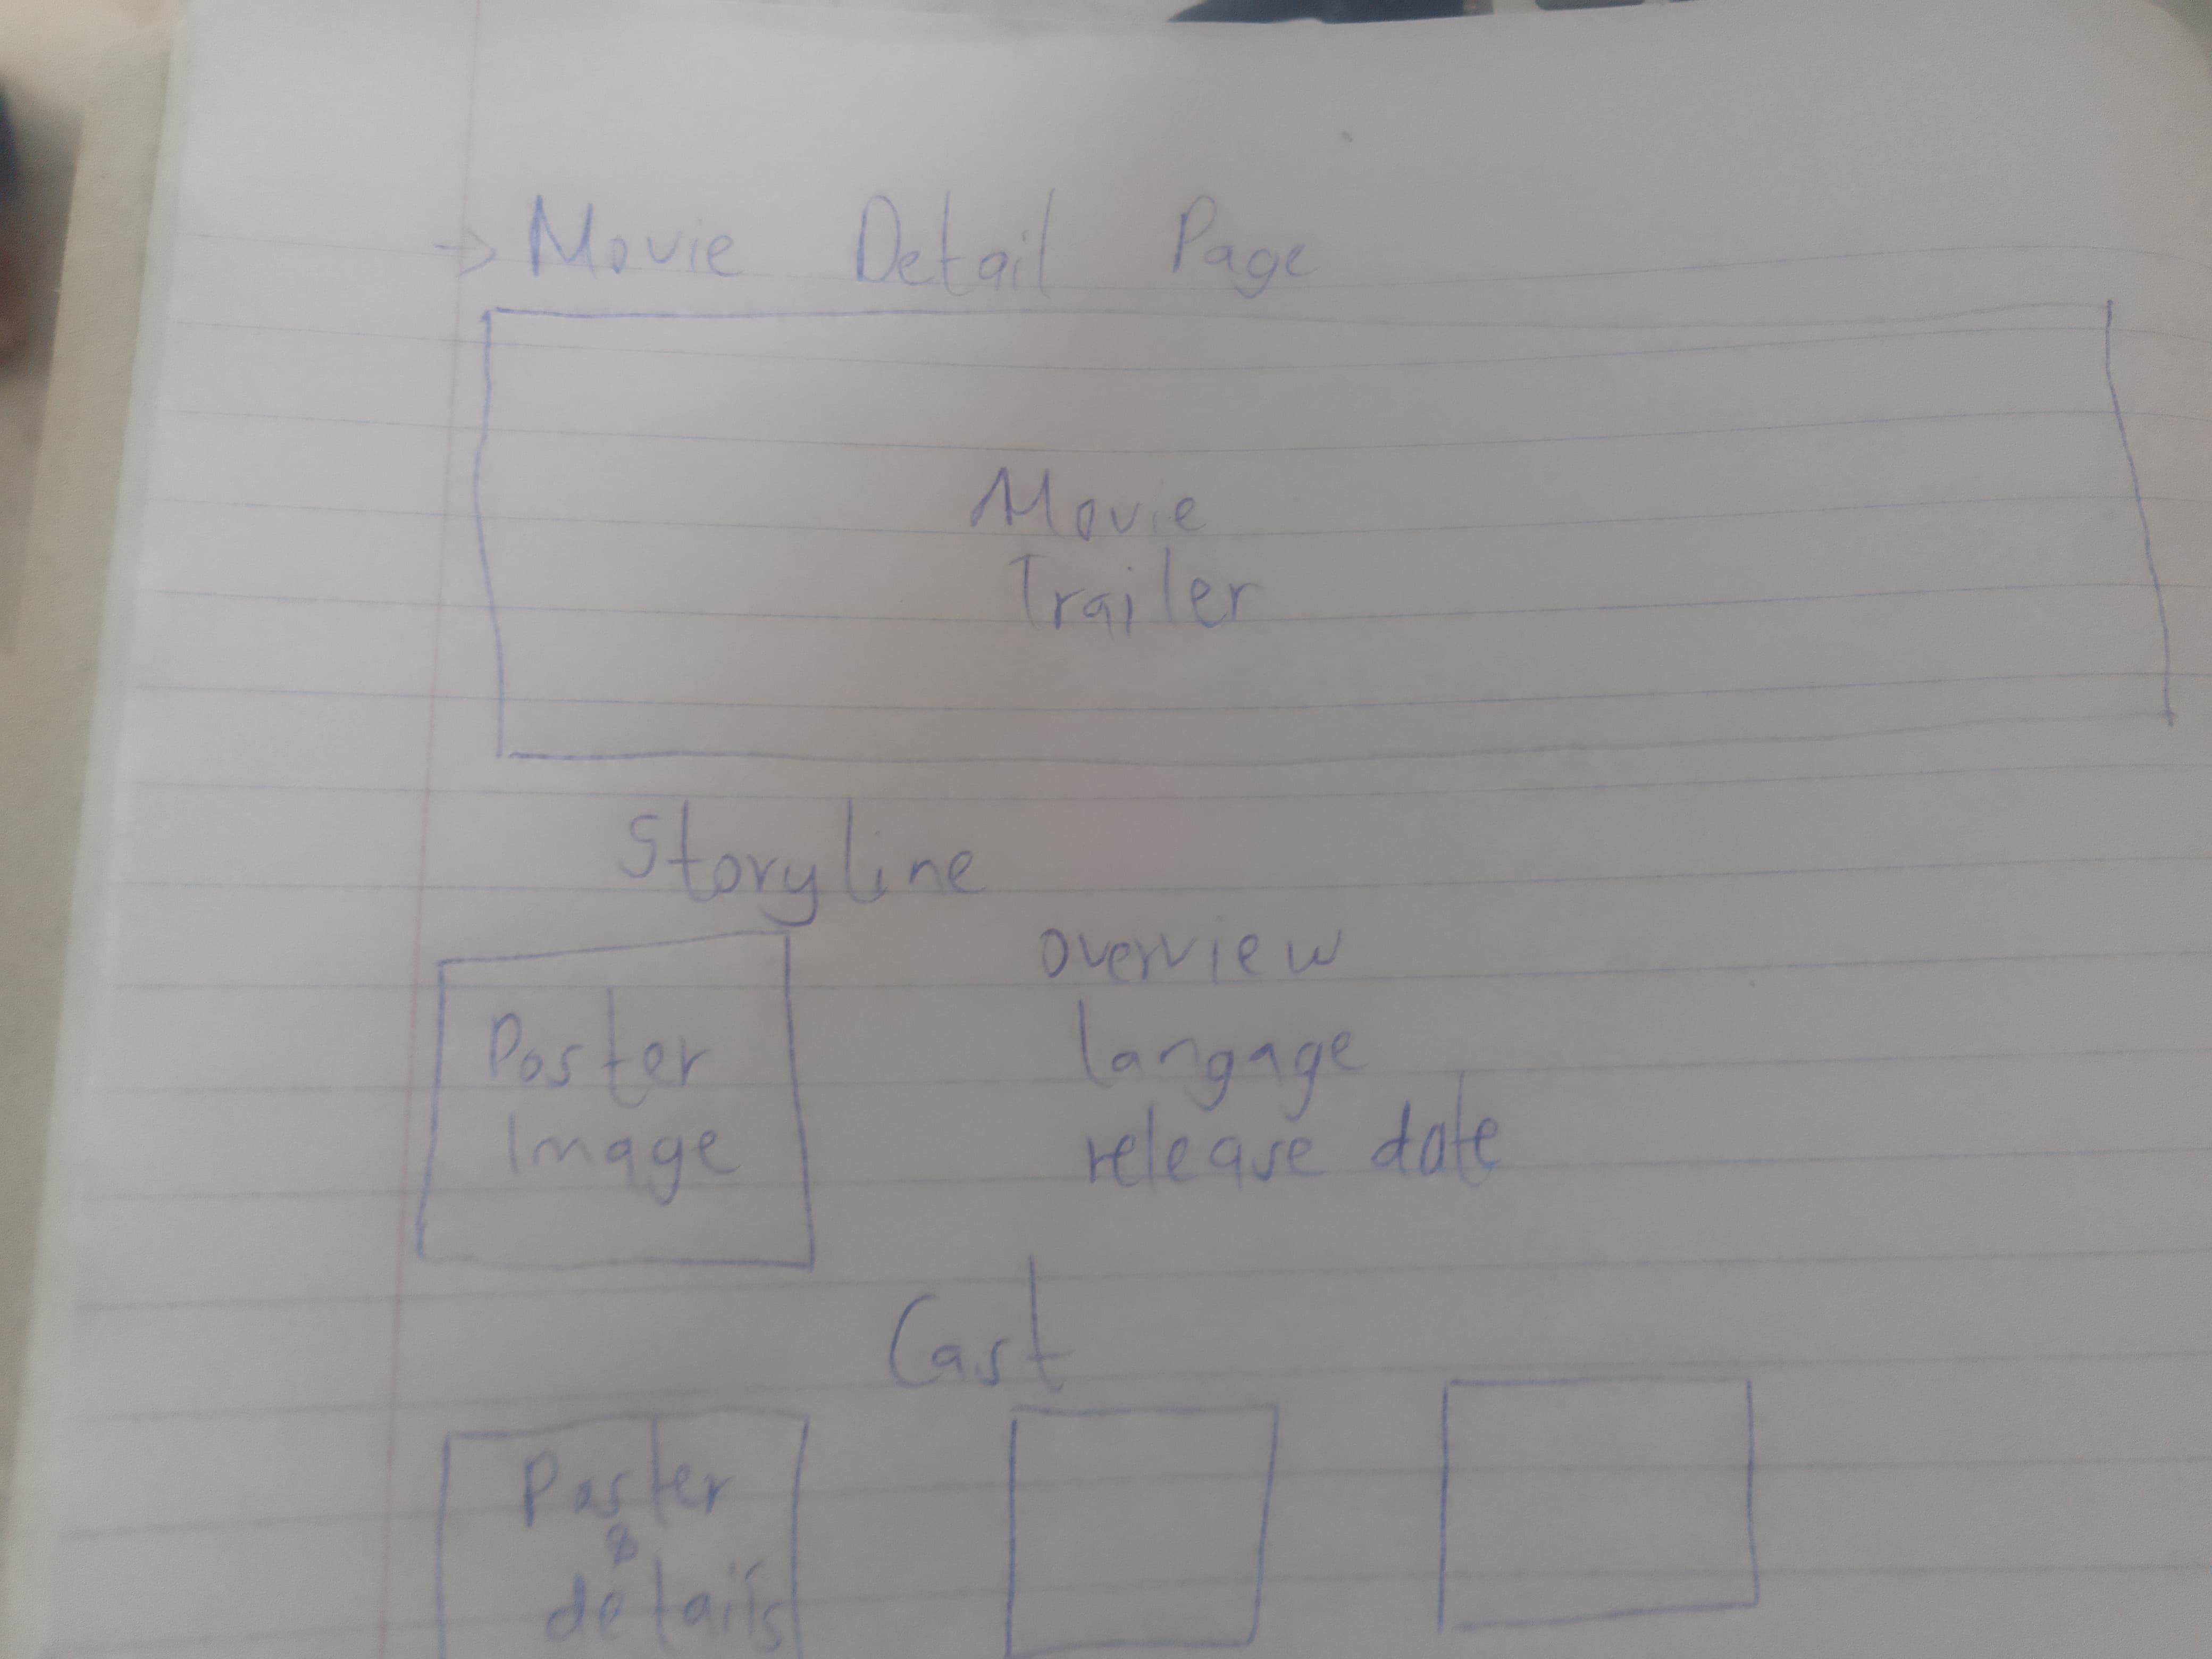 → Movie Detail Page
Movie
Trailer
Storyline
Poster
Image
overview
langage
release date
Cast
Poster
&
details